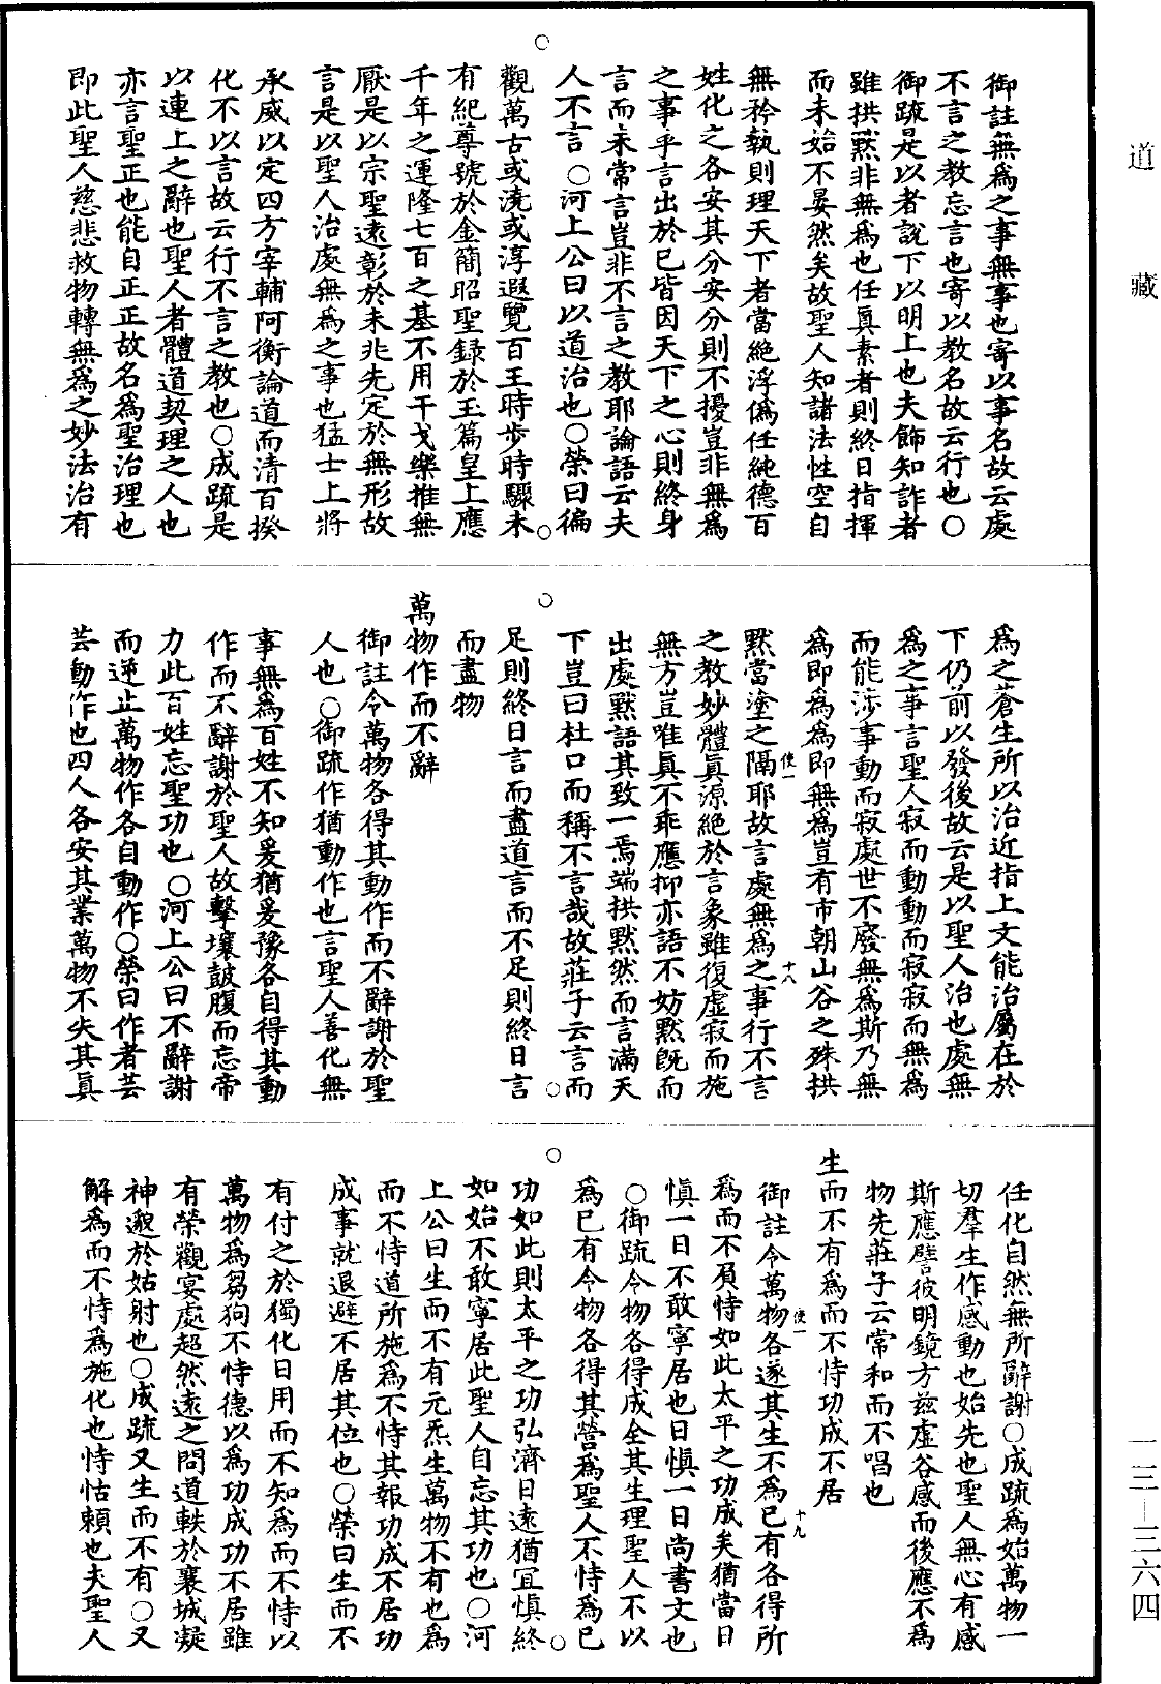 道藏
御註無為之事無事也寄以事名故云處
不言之教忘言也寄以教名故云行也○
御疏是以者說下以明上也夫飾知詐者
雖拱默非無為也任真素者則終日指揮
而未始不晏然矣故聖人知諸法性空自
無矜執則理天下者當絕浮偽任純德百
姓化之各安其分安分則不擾豈非無為
之事乎言出於已皆因天下之心則終身
言而未常言豈非不言之教耶論語云夫
人不言○河上公曰以道治也○榮曰徧
觀萬古或澆或淳遐覽百王時步時驟未
有紀尊號於金簡昭聖錄於玉篇皇上應
千年之運隆七百之基不用干戈樂推無
厭是以宗聖遠彰於未兆先定於無形故
言是以聖人治處無為之事也猛士上將
承威以定四方宰輔阿衡論道而清百揆
化不以言故云行不言之教也○成疏是
以連上之辭也聖人者體道契理之人也
亦言聖正也能自正正故名為聖治理也
即此聖人慈悲救物轉無為之妙法治有
為之蒼生所以治近指上文能治屬在於
下仍前以發後故云是以聖人治也處無
為之事言聖人寂而動動而寂寂而無為
而能涉事動而寂處世不廢無為斯乃無
為即為為即無為豈有市朝山谷之殊拱
默當塗之隔耶故言處無為之事行不言
使一
十八
之教妙體真源絕於言象雖復虛寂而施
無方豈唯真不乖應抑亦語不妨默既而
出處默語其致一焉端拱默然而言滿天
下豈曰杜口而稱不言哉故莊子云言而
足則終日言而盡道言而不足則終日言
而盡物
萬物作而不辭
御註令萬物各得其動作而不辭謝於聖
人也○御疏作猶動作也言聖人善化無
事無為百姓不知爰猶爰豫各自得其動
作而不辭謝於聖人故擊壤皷腹而忘帝
力此百姓忘聖功也○河上公曰不辭謝
而逆止萬物作各自動作○榮曰作者芸
芸動作也四人各安其業萬物不失其真
任化自然無所辭謝○成疏為始萬物一
切羣生作感動也始先也聖人無心有感
斯應譬彼明鏡方茲虛谷感而後應不為
物先莊子云常和而不唱也
生而不有為而不恃功成不居
御註令萬物各遂其生不為已有各得所
使一
十九
為而不負恃如此太平之功成矣猶當日
慎一日不敢寧居也日慎一日尚書文也
○御疏令物各得成全其生理聖人不以
為已有令物各得其營為聖人不恃為已
功如此則太平之功弘濟日遠猶宜慎終
如始不敢寧居此聖人自忘其功也○河
上公曰生而不有元炁生萬物不有也為
而不恃道所施為不恃其報功成不居功
成事就退避不居其位也○榮曰生而不
有付之於獨化日用而不知為而不恃以
萬物為芻狗不恃德以為功成功不居雖
有榮觀宴處超然遠之問道軼於襄城凝
神邈於姑射也○成疏又生而不有○又
解為而不恃為施化也恃怙賴也夫聖人
一三－三六四